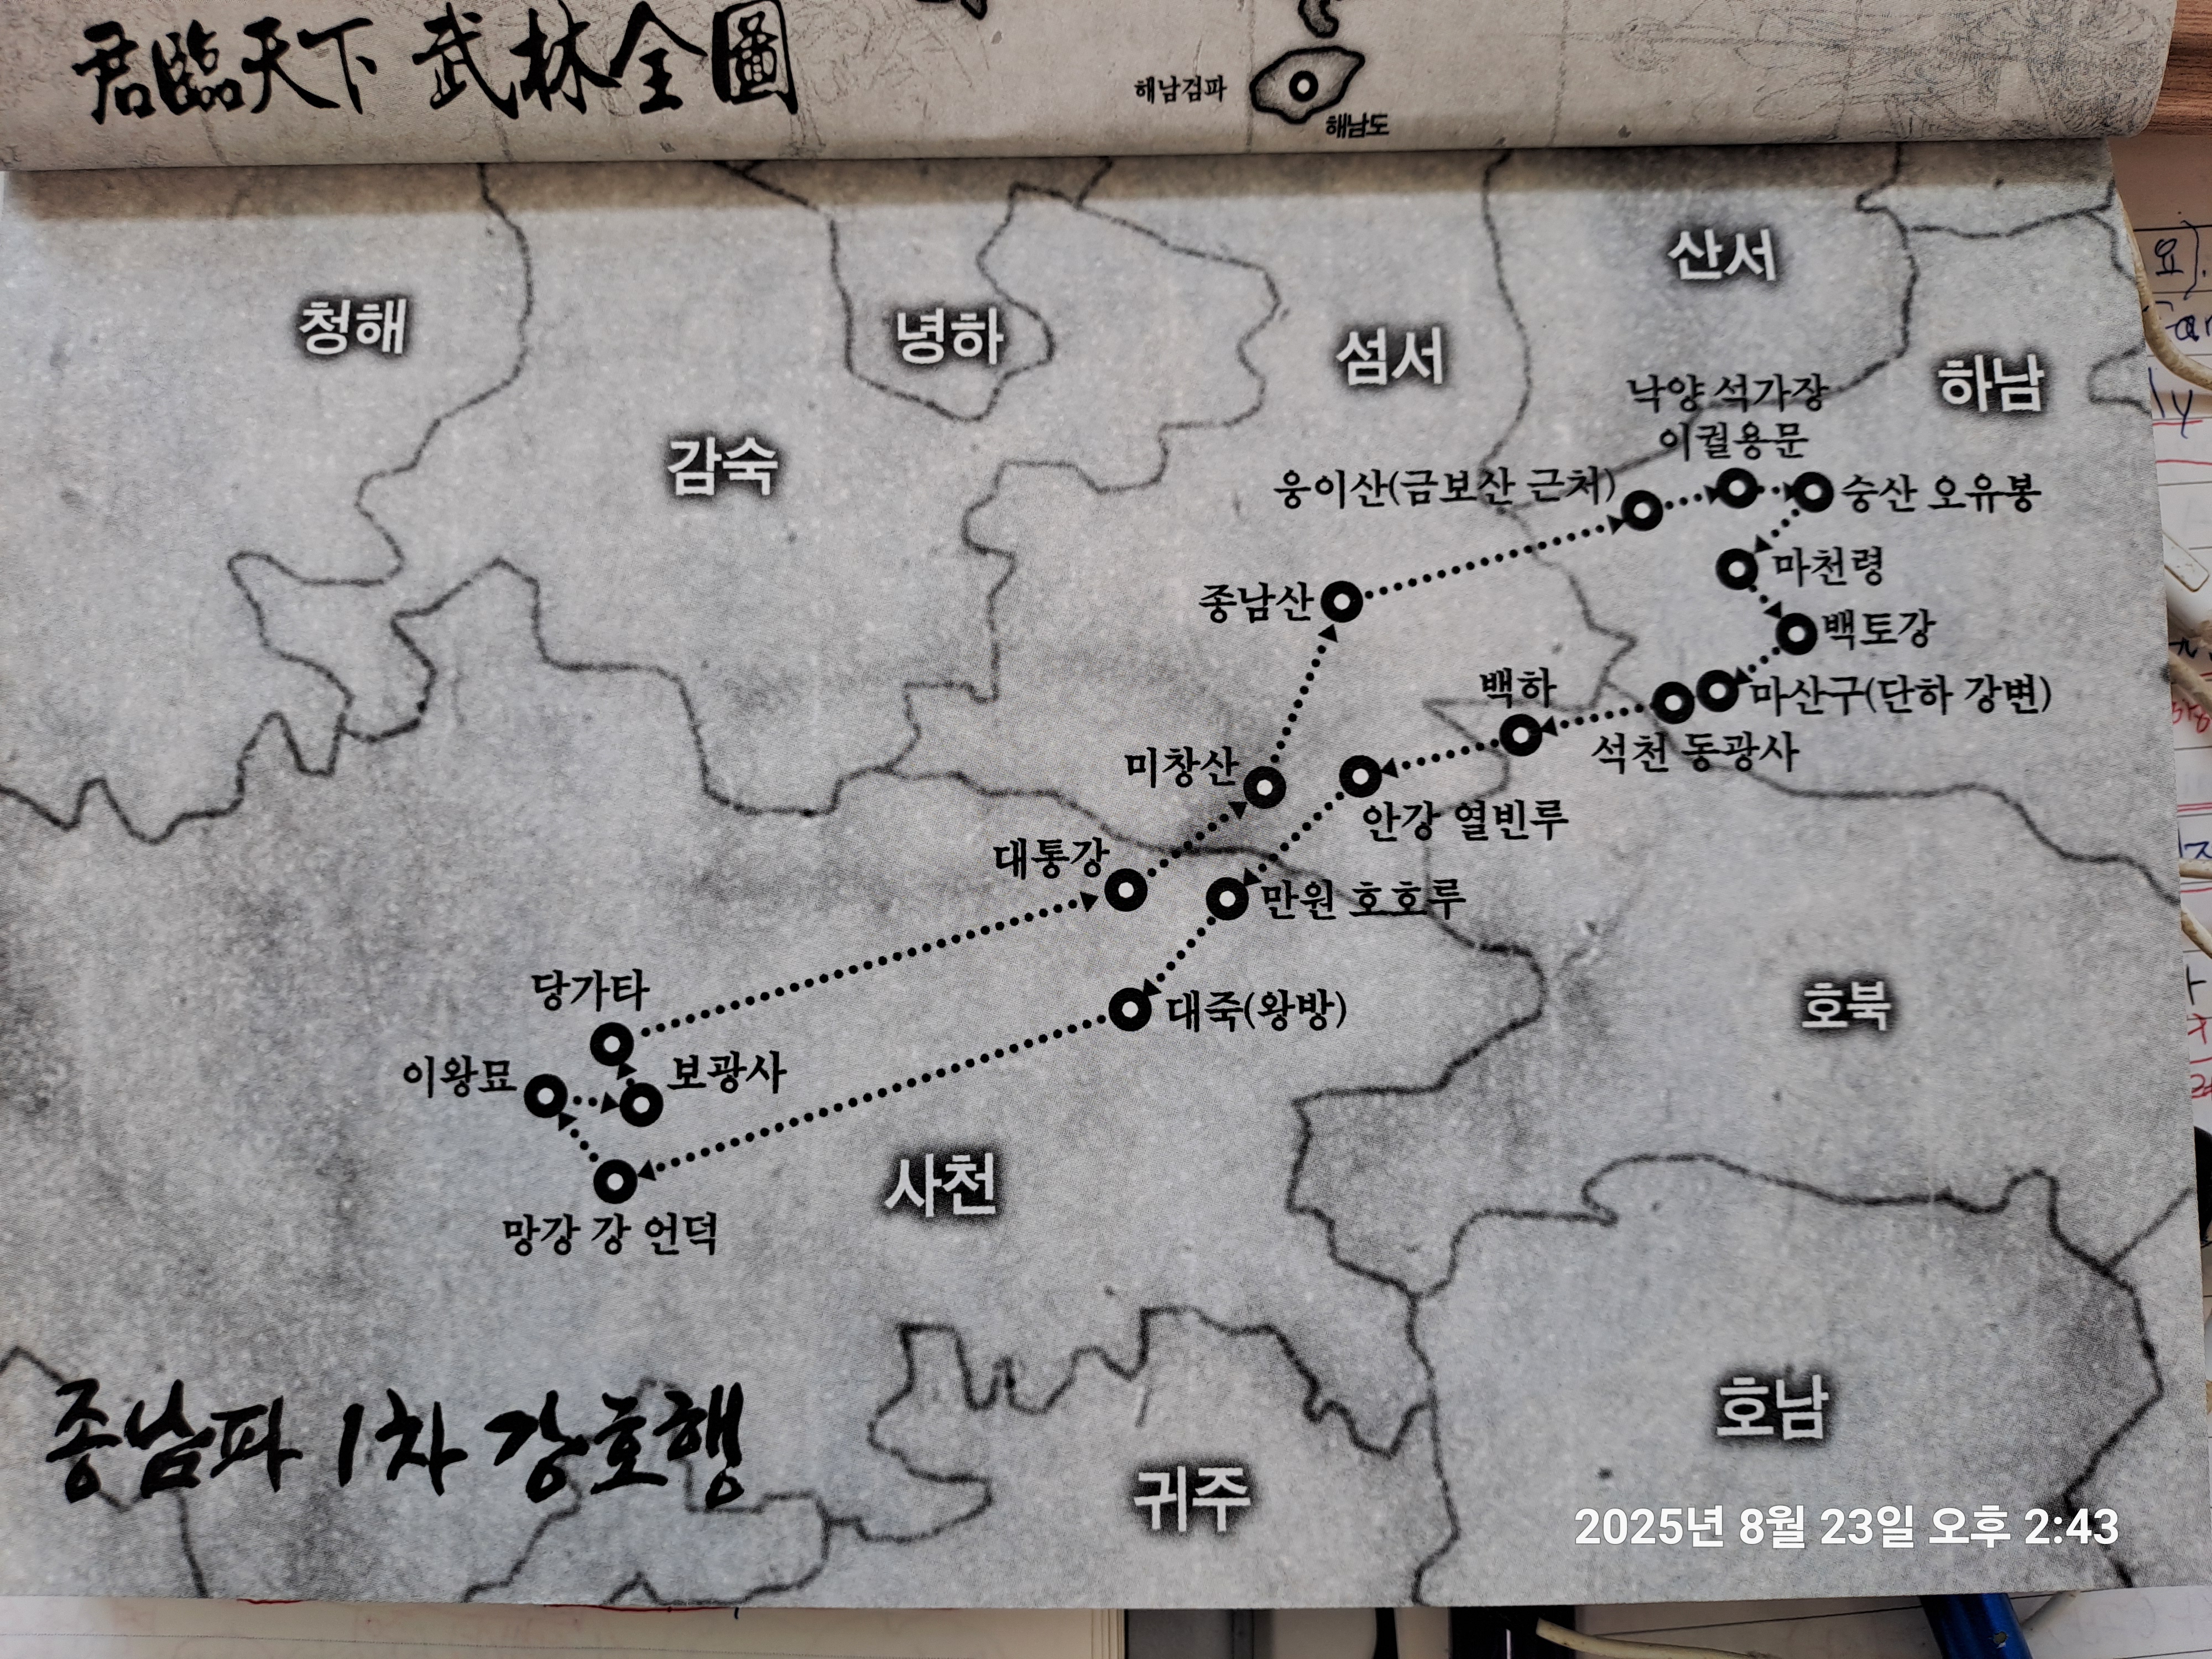 君臨天下 武林全圖
해남검파
해남도
청해
녕하
감숙
섬서
산서
하남
낙양 석가장
이궐용문
웅이산(금보산 근처)
숭산 오유봉
마천령
종남산
백토강
백하
마산구(단하 강변)
석천 동광사
미창산
안강 열빈루
대통강
만원 호호루
당가타
대죽(왕방)
호북
이왕묘
보광사
사천
망강 강 언덕
호남
귀주
종남파 1차 강호행
2025년 8월 23일 오후 2:43
요).